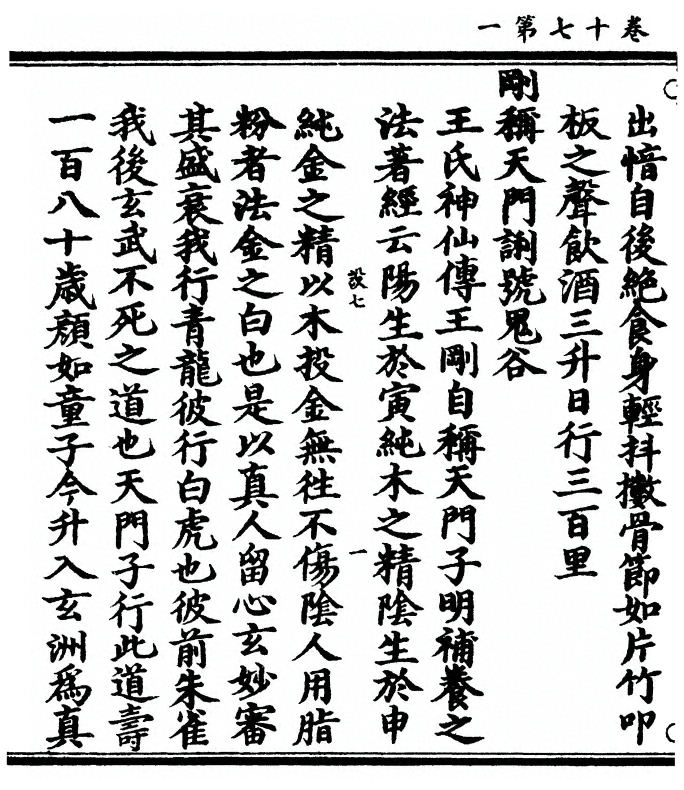 卷十七第一
出愔自後絶食身輕抖擻骨節如片竹叩
板之聲飲酒三升日行三百里
剛稱天門訓號鬼谷
王氏神仙傳王剛自稱天門子明補養之
法著經云陽生於寅純木之精陰生於申
設七
一
純金之精以木投金無徃不傷陰人用脂
粉者法金之白也是以真人留心玄妙審
其盛衰我行青龍彼行白虎也彼前朱雀
我後玄武不死之道也天門子行此道壽
一百八十歲顔如童子今升入玄洲爲真